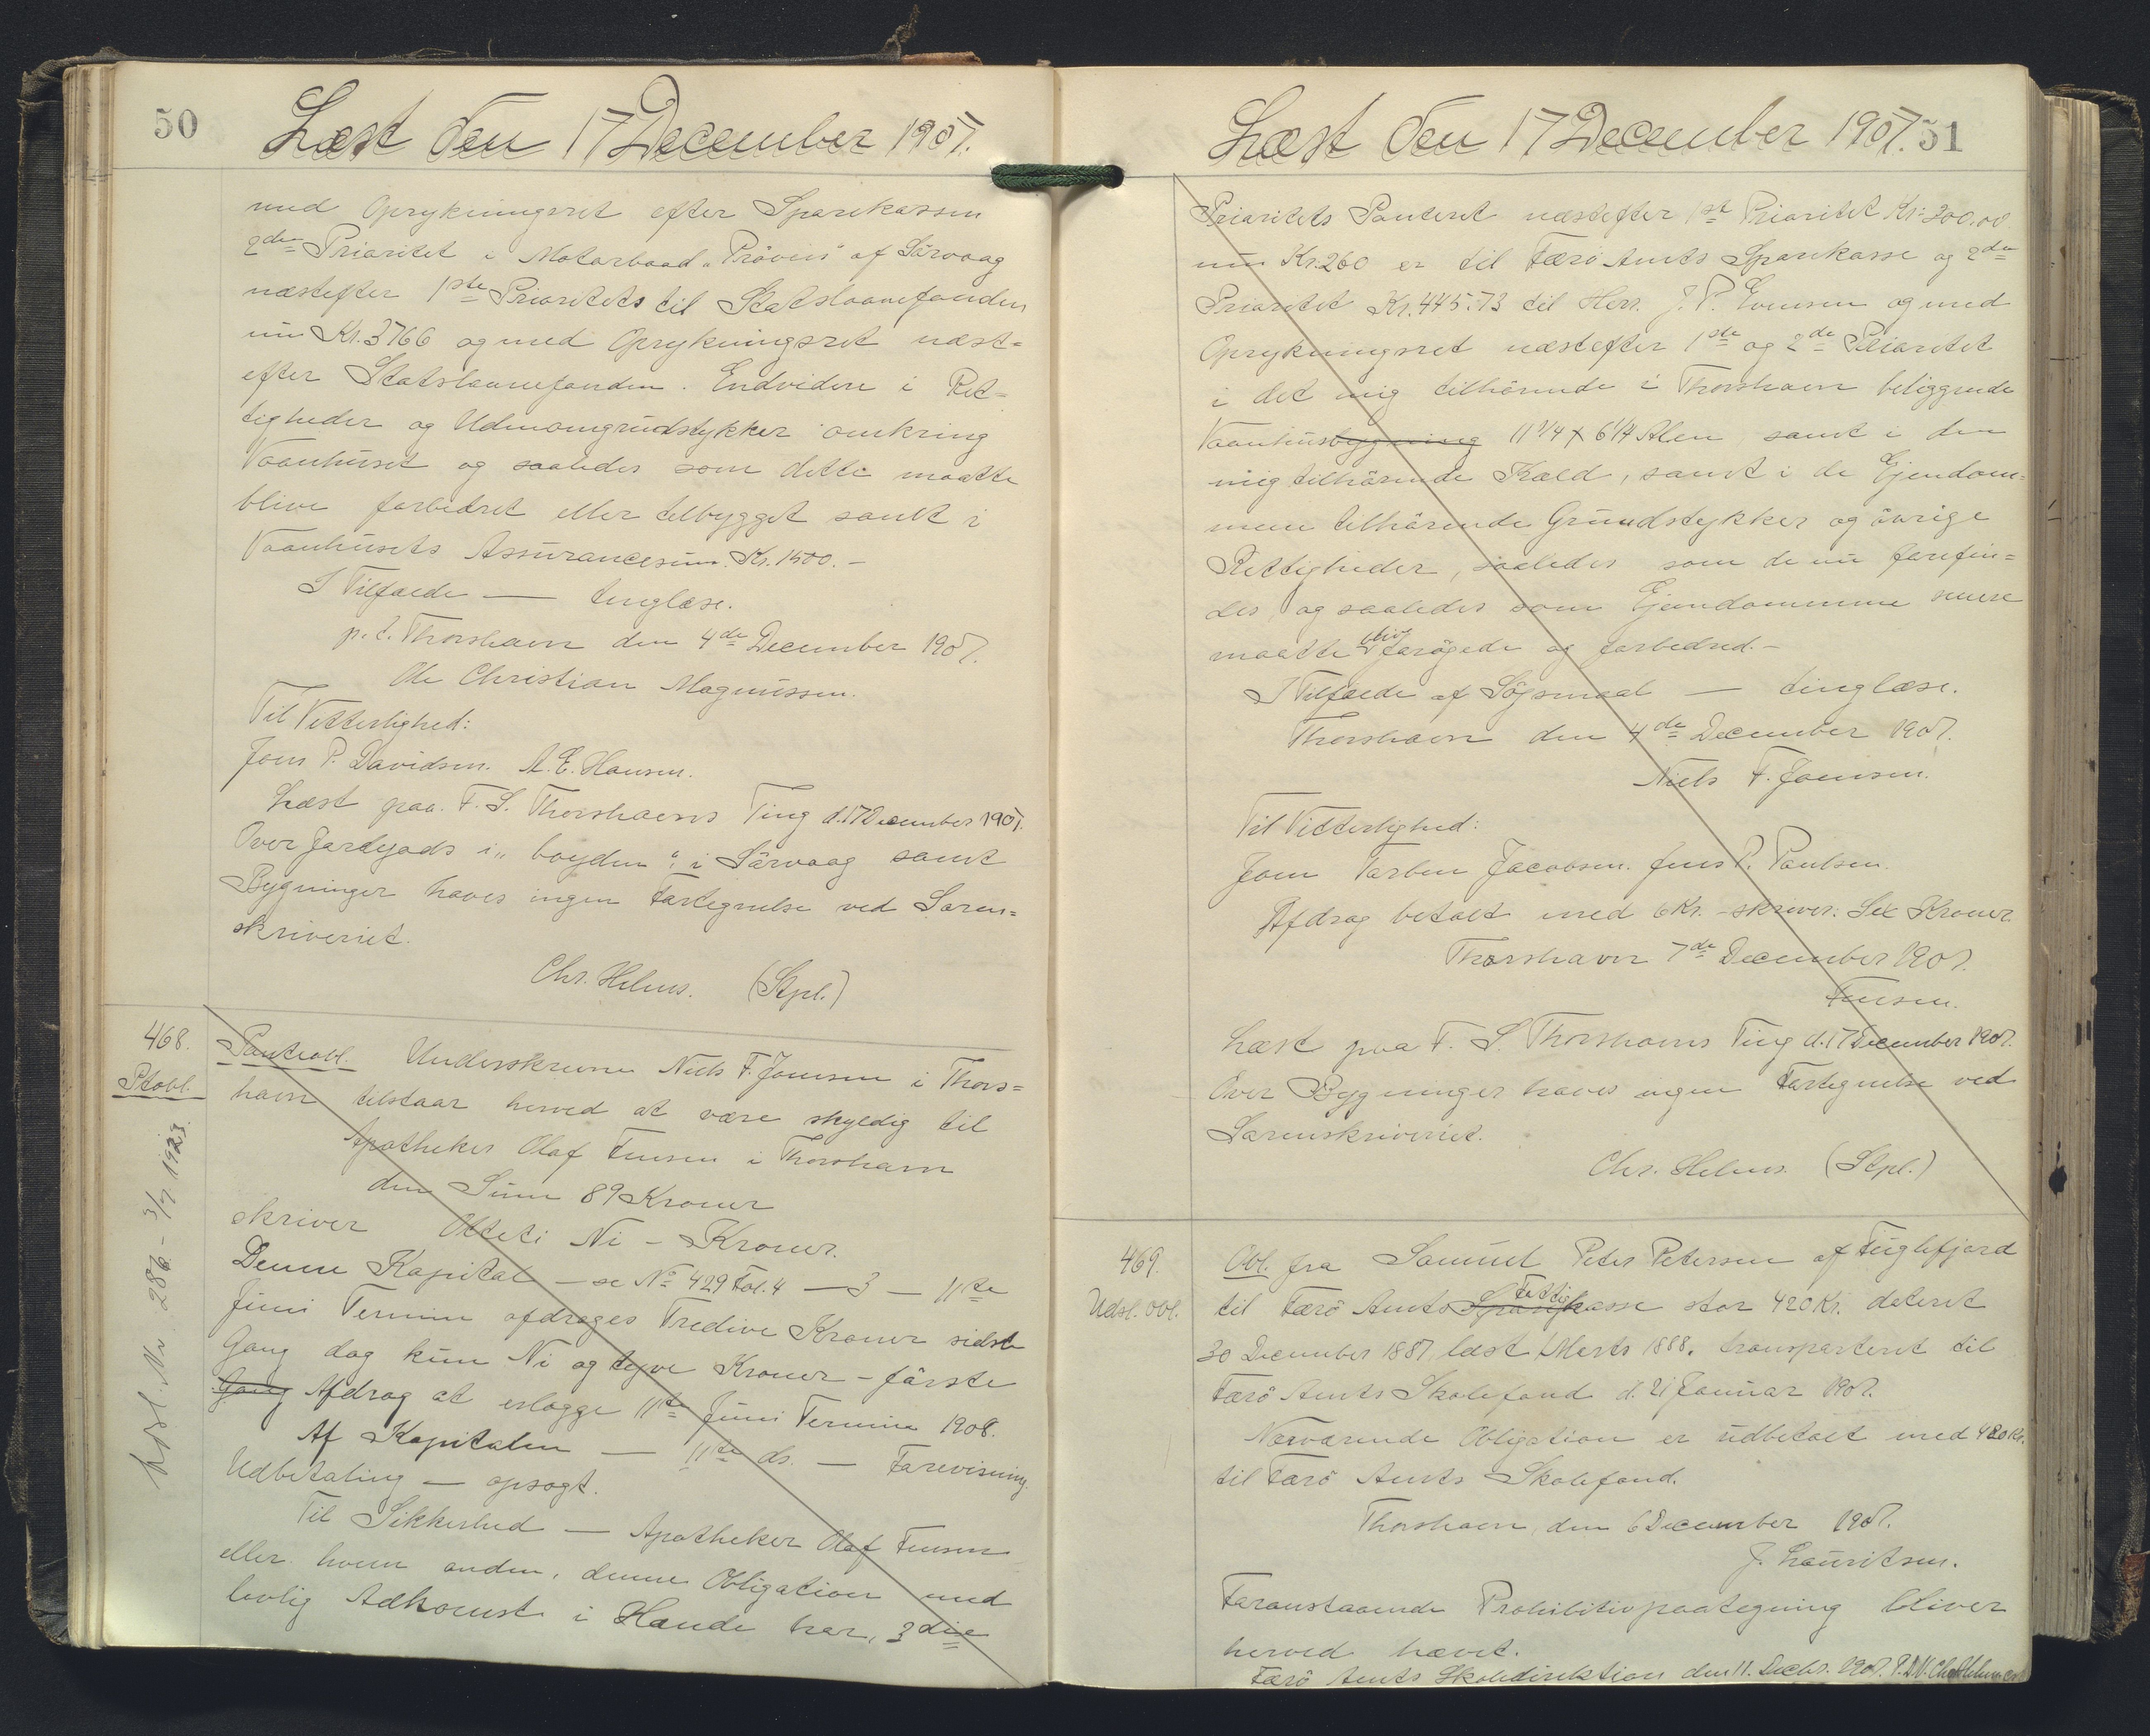 50
Læst den 17 December 1907.
med Oprykningsret efter Sparekassen
2den Prioritet i Motorbaad „Prövin" af Sörvaag
næstefter 1ste Prioritets til Statslaanefonden
nu Kr. 3766 og med Oprykningsret næst=
efter Statslaanefonden. Endvidere i Ret=
tigheder og Udenomgrundstykker omkring
Vaanhuset og saaledes som dette maatte
blive forbedret eller tilbygget samt i
Vaanhusets Assurancesum Kr. 1500.-
I Tilfælde — tinglæse.
p. t. Thorshavn den 4de December 1907.
Ole Christian Magnussen.
Til Vitterlighed:
Joen P. Davidsen. A. E. Hansen.
Læst paa F. S. Thorshavns Ting d. 17 December 1907.
Over Jordgods i „ boyden " i Sörvaag samt
Bygninger haves ingen Fortegnelse ved Soren=
skriveriet.
Chr. Helms. (Stpl.)
468.
Ptobl.
Panteobl. Underskrevne Niels F. Joensen i Thors=
havn tilstaar herved at være skyldig til
Apotheker Olaf Finsen i Thorshavn
den Sum 89 Kroner
skriver Otteti Ni - Kroner.
Denne Kapital — se No 429 Fol. 4 — 3 — 11te
Juni Termin afdrages Tredive Kroner sidste
Gang dog kun Ni og tyve Kroner - förste
Gang Afdrag at erlægge 11te Juni Termin 1908.
Af Kapitalen — 11te ds. — Forevisning
Udbetaling — opsagt.
Til Sikkerhed — Apotheker Olaf Finsen
eller hvem anden, denne Obligation med
lovlig Adkomst i Hænde har, 3die
Læst den 17 December 1907.
51
Prioritets Panteret næstefter 1ste Prioritet Kr. 300.00
nu Kr. 260 er til Færö Amts Sparekasse og 2den
Prioritet Kr. 445.73 til Herr. J. P. Evensen og med
Oprykningsret næstefter 1ste og 2de Prioritet
i det mig tilhörende i Thorshavn beliggende
Vaanhusbygning 11 1/4 x 6 1/4 Alen samt i den
mig tilhörende Kæld, samt i de Ejendom=
mene tilhörende Grundstykker og övrige
Rettigheder, saaledes som de nu forefin=
des, og saaledes som Ejendommene senere
maatte bliv forögede og forbedred.-
I Tilfælde af Sögsmaal — tinglæse.
Thorshavn den 4de December 1907.
Niels F. Joensen.
Til Vitterlighed:
Joen Torben Jacobsen. Jens P. Poulsen.
Afdrag betalt med 6 Kr. - skriver: Sex Kroner.
Thorshavn 7de December 1907.
Finsen.
Læst paa F. S. Thorshavns Ting d. 17 December 1907.
Over Bygninger haves ingen Fortegnelse ved
Sorenskriveriet.
Chr. Helms. (Stpl.)
469.
Udsl. Obl.
Obl. fra Samuel Peter Petersen af Fuglefjord
til Færö Amts Sparekasse Fattigkasse stor 420 Kr. dateret
30 December 1887 læst Marts 1888. transporteret til
Færö Amts Skolefond d. 21 Januar 1907.
Nærværende Obligation er udbetalt med 420 Kr.
til Færö Amts Skolefond.
Thorshavn, den 6 December 1907.
J. Lauritsen.
Foranstaaende Prohibitivpaategning bliver
herved hævet.
Færö Amts Skoledirektion den 11. Decbr. 1907.